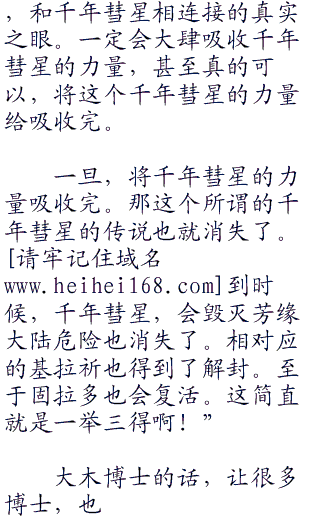 ，和千年彗星相连接的真实
之眼。一定会大肆吸收千年
彗星的力量，甚至真的可
以，将这个千年彗星的力量
给吸收完。
一旦，将千年彗星的力
量吸收完。那这个所谓的千
年彗星的传说也就消失了。
[请牢记住域名
www.heihei168.com]到时
候，千年彗星，会毁灭芳缘
大陆危险也消失了。相对应
的基拉祈也得到了解封。至
于固拉多也会复活。这简直
就是一举三得啊！”
大木博士的话，让很多
博士，也